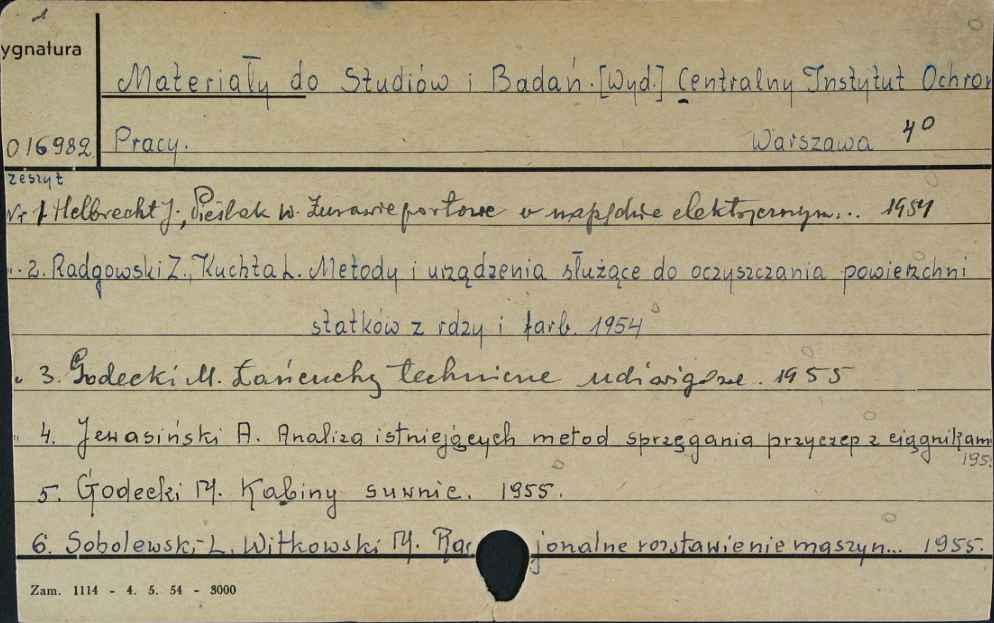 ygnatura
Materiały do Studiów i Badań. [Wyd.] Centralny Instytut Ochron
016982 Pracy. Warszawa 4°
zeszyt
Nr 1 Helbrecht J., Pieślak W. Żurawie portowe o napędzie elektrycznym... 1954
" 2. Radgowski Z., Kuchta L. Metody i urządzenia służące do oczyszczania powierzchni
statków z rdzy i farb. 1954
" 3. Godecki M. Łańcuchy techniczne udźwigowe. 1955
" 4. Jewasiński A. Analiza istniejących metod sprzęgania przyczep z ciągnikami
195
5. Godecki M. Kabiny suwnic. 1955.
6. Sobolewski L. Witkowski M. Rac jonalne rozstawienie maszyn... 1955.
Zam. 1114 - 4. 5. 54 - 3000